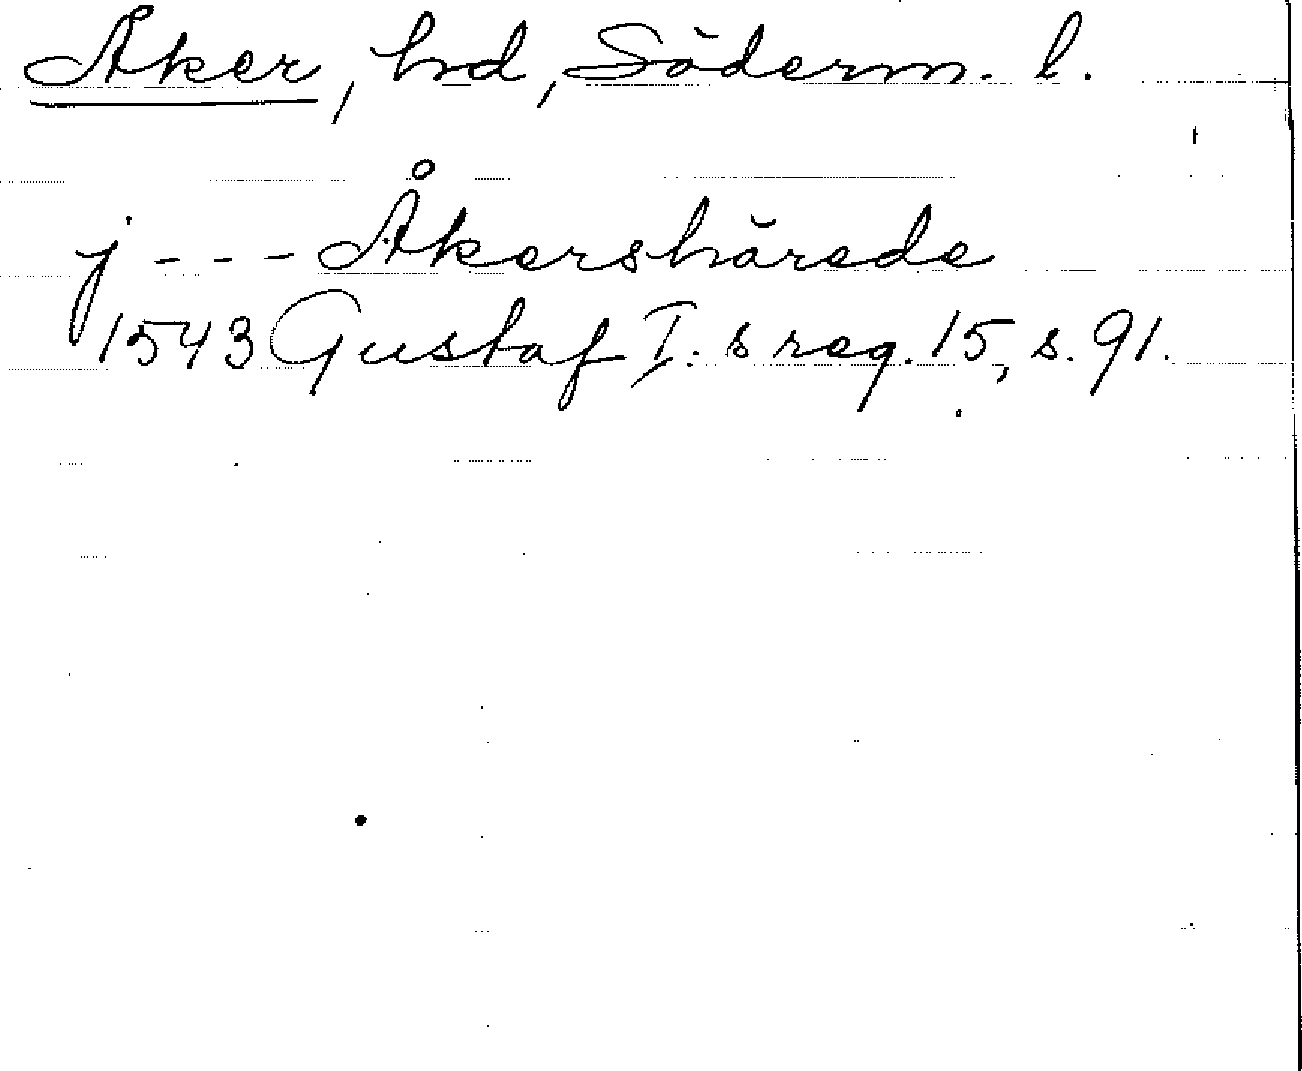 Åker, hd, Söderm. l.
j - - - Åkershärede
1543 Gustaf I:s reg. 15, s. 91.